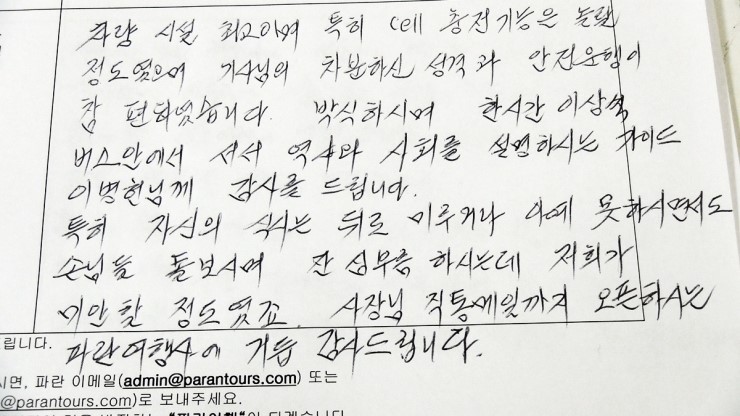 차량 시설 최고이며 특히 cell 충전기능은 놀랄
정도였으며 기사님의 차분하신 성격과 안전운행이
참 편하였습니다. 박식하시며 한시간 이상씩
버스안에서 서서 역사와 사회를 설명하시는 가이드
이병헌님께 감사를 드립니다.
특히 자신의 식사는 뒤로 미루거나 아예 못하시면서도
손님들 돌보시며 잔 심부름 하시는데 저희가
미안할 정도였죠. 사장님 직통메일까지 오픈하시는
파란여행사에 거듭 감사드립니다.
립니다.
시면, 파란 이메일(admin@parantours.com) 또는
@parantours.com)로 보내주세요.